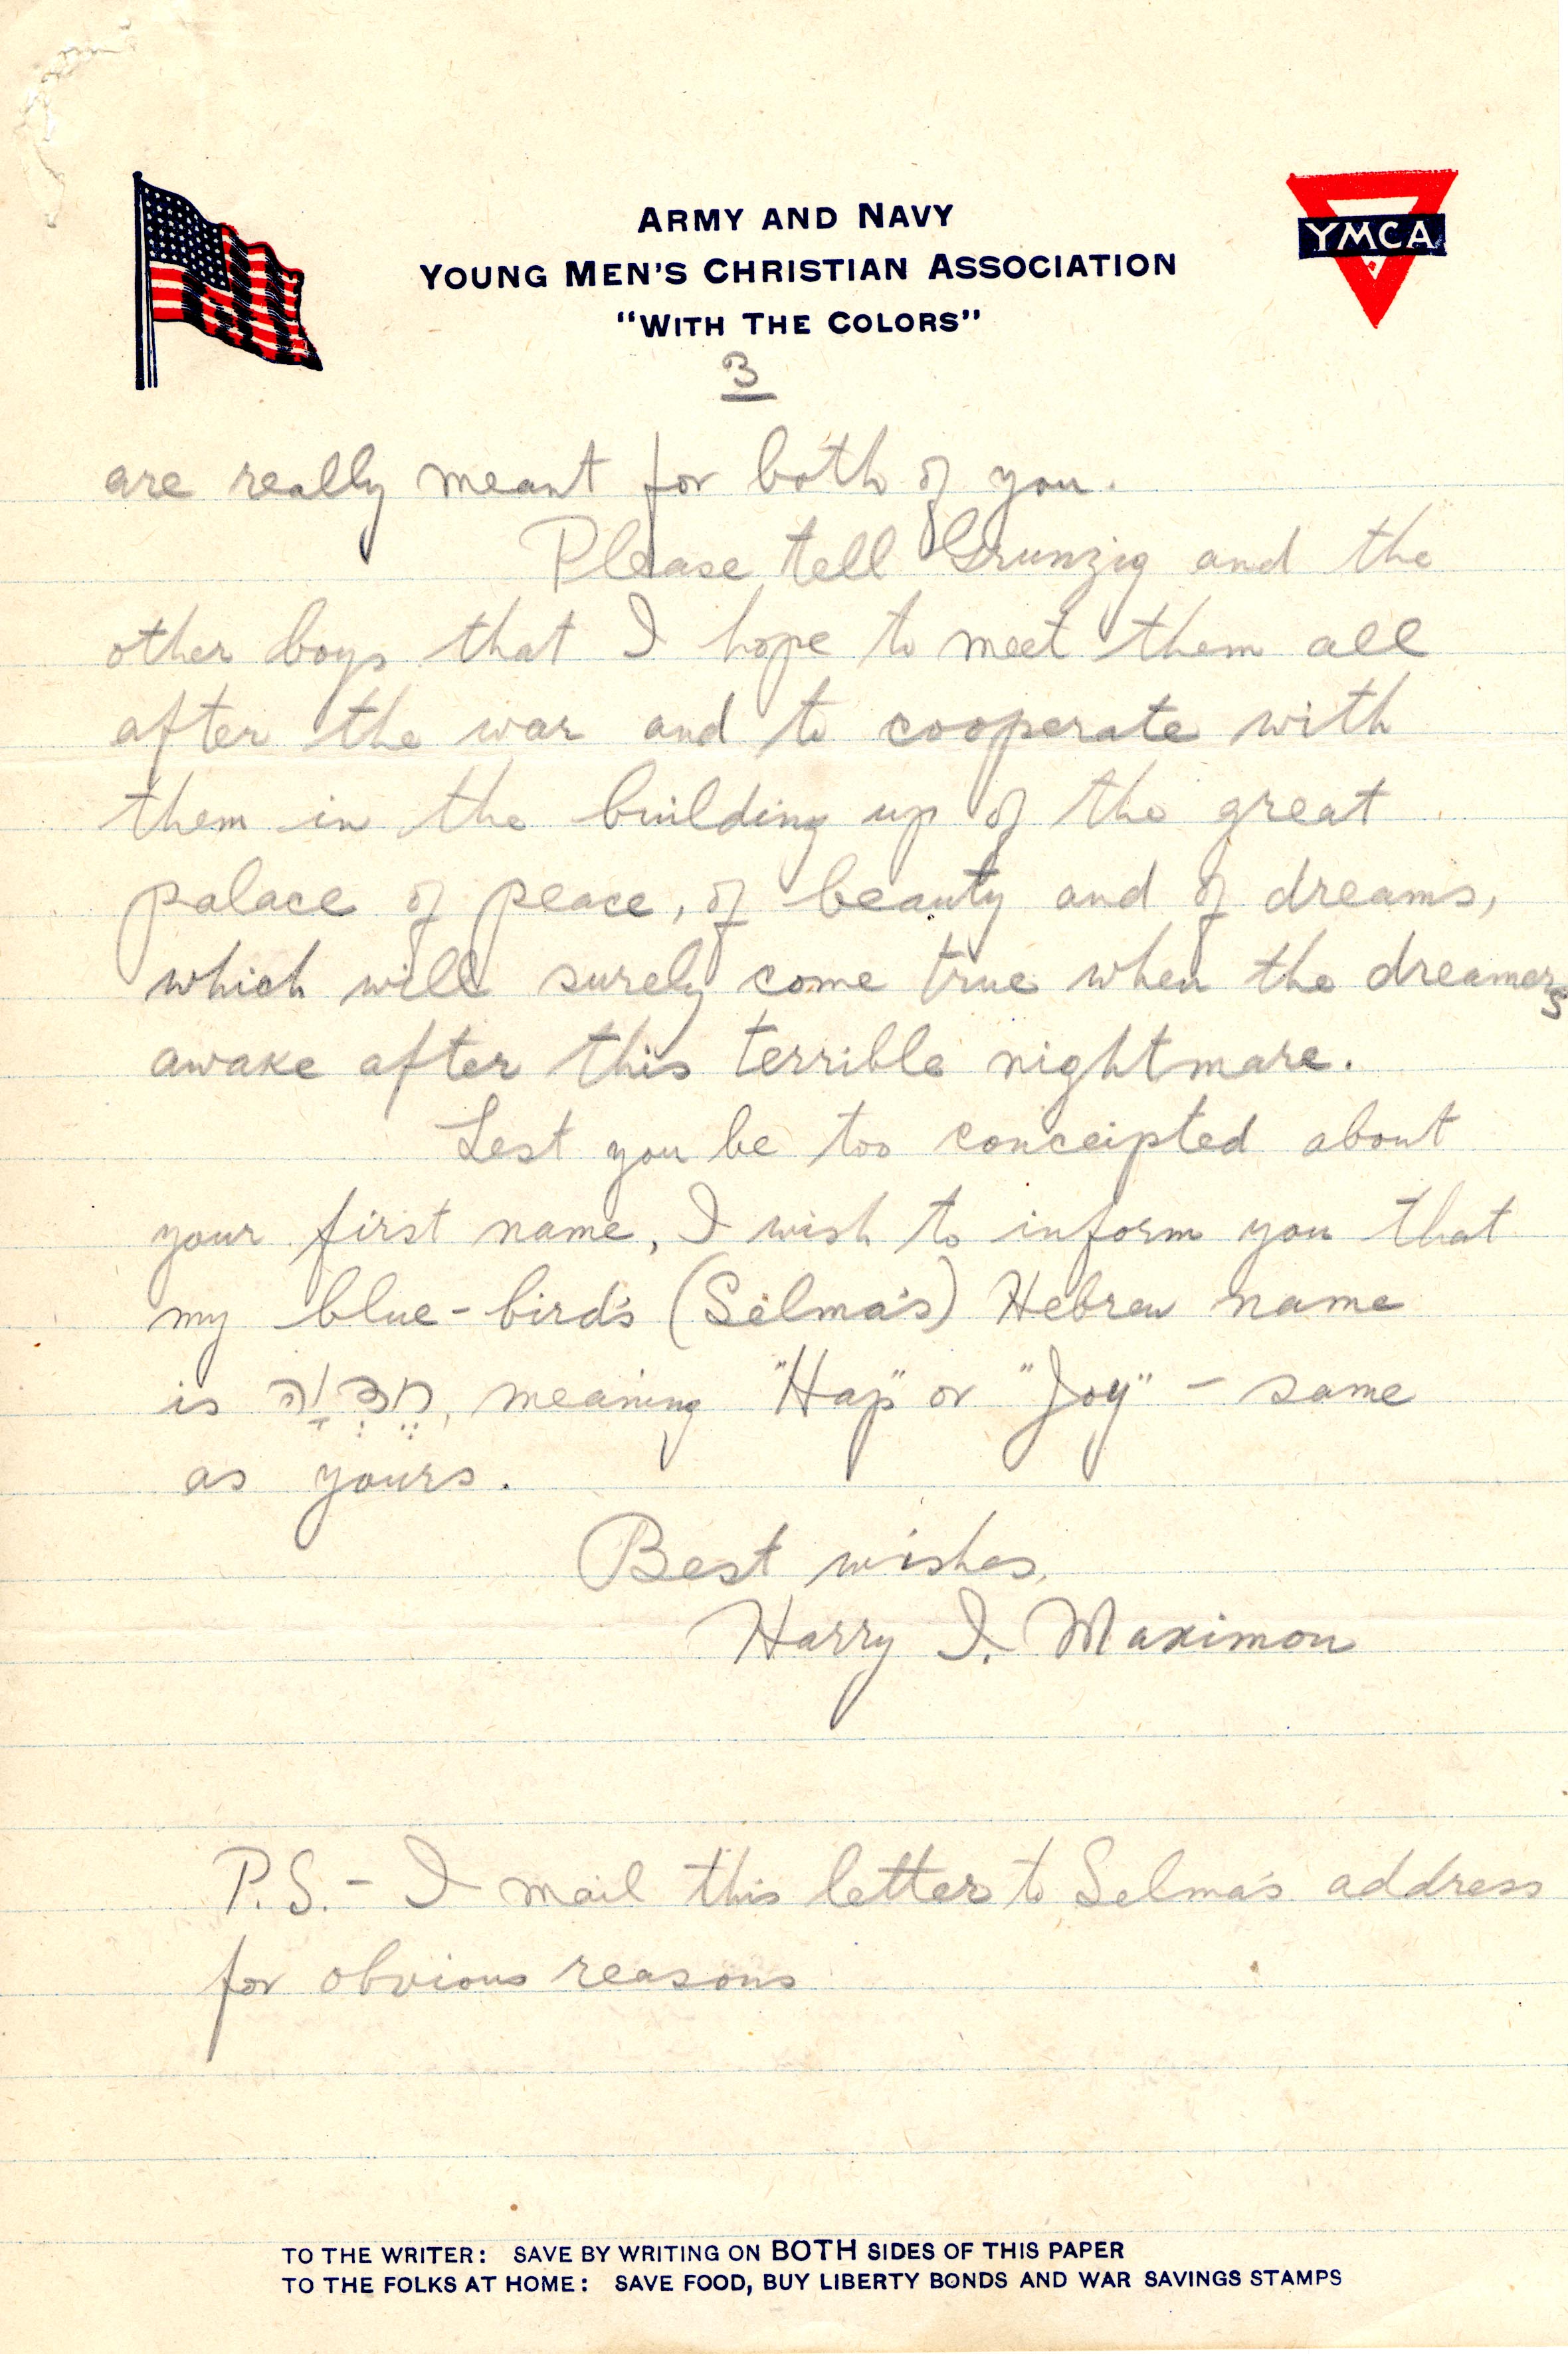 ARMY AND NAVY
YOUNG MEN'S CHRISTIAN ASSOCIATION
"WITH THE COLORS"
YMCA
3
are really meant for both of you.
Please tell Grunzig and the
other boys that I hope to meet them all
after the war and to cooperate with
them in the building up of the great
palace of peace, of beauty and of dreams,
which will surely come true when the dreamers
awake after this terrible nightmare.
Lest you be too conceipted about
your first name, I wish to inform you that
my blue-bird's (Selma's) Hebrew name
is חֶדְוָה, meaning "Hap" or "Joy" - same
as yours.
Best wishes,
Harry I. Maximon
P.S. - I mail this letter to Selma's address
for obvious reasons
TO THE WRITER: SAVE BY WRITING ON BOTH SIDES OF THIS PAPER
TO THE FOLKS AT HOME: SAVE FOOD, BUY LIBERTY BONDS AND WAR SAVINGS STAMPS